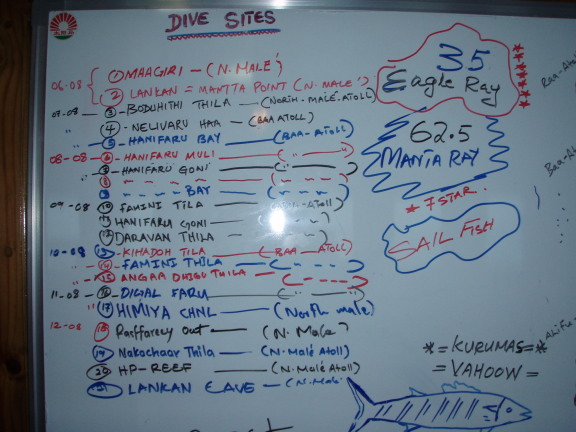 DIVE SITES
06-08 ① MAAGIRI - (N. MALE')
② LANKAN = MANTTA POINT (N. MALE')
07-08 ③ - BODUHITHI THILA - (NORTH-MALE-ATOLL)
" ④ - NELIVARU HAA - (BAA ATOLL)
" ⑤ - HANIFARU BAY - (BAA-ATOLL)
08-08 - ⑥ - HANIFARU MULI - ( " " )
⑦ HANIFARU GONI - ( " " )
⑧ - - - - ( - - - )
⑨ - - BAY - ( - - - )
09-08 - ⑩ FAMINI TILA - ( - Atoll)
⑪ HANIFARU GONI - ( - - )
⑫ DARAVAN THILA - ( - - )
10-08 ⑬ - KIHADOH TILA - (BAA - ATOLL)
" ⑭ - FAMINI THILA - ( - - - )
" ⑮ - ANGAA DHIGU THILA - ( - - - )
11-08 - ⑯ - DIGAL FARU - ( " )
" ⑰ HIMIYA CHNL - (North male)
12-08 ⑱ Rasfareey Out - (N. Male)
⑲ Nakachaar Thila - (N. Malé Atoll)
⑳ HP-REEF - (N. Malé Atoll)
㉑ LANKAN CAVE - (N. Malé
35
Eagle Ray
62.5
MANTA RAY
* 7 STAR.
SAIL FISH
* = KURUMAS = *
= VAHOOW =
Raa-Ato
Baa-A
Alifu-